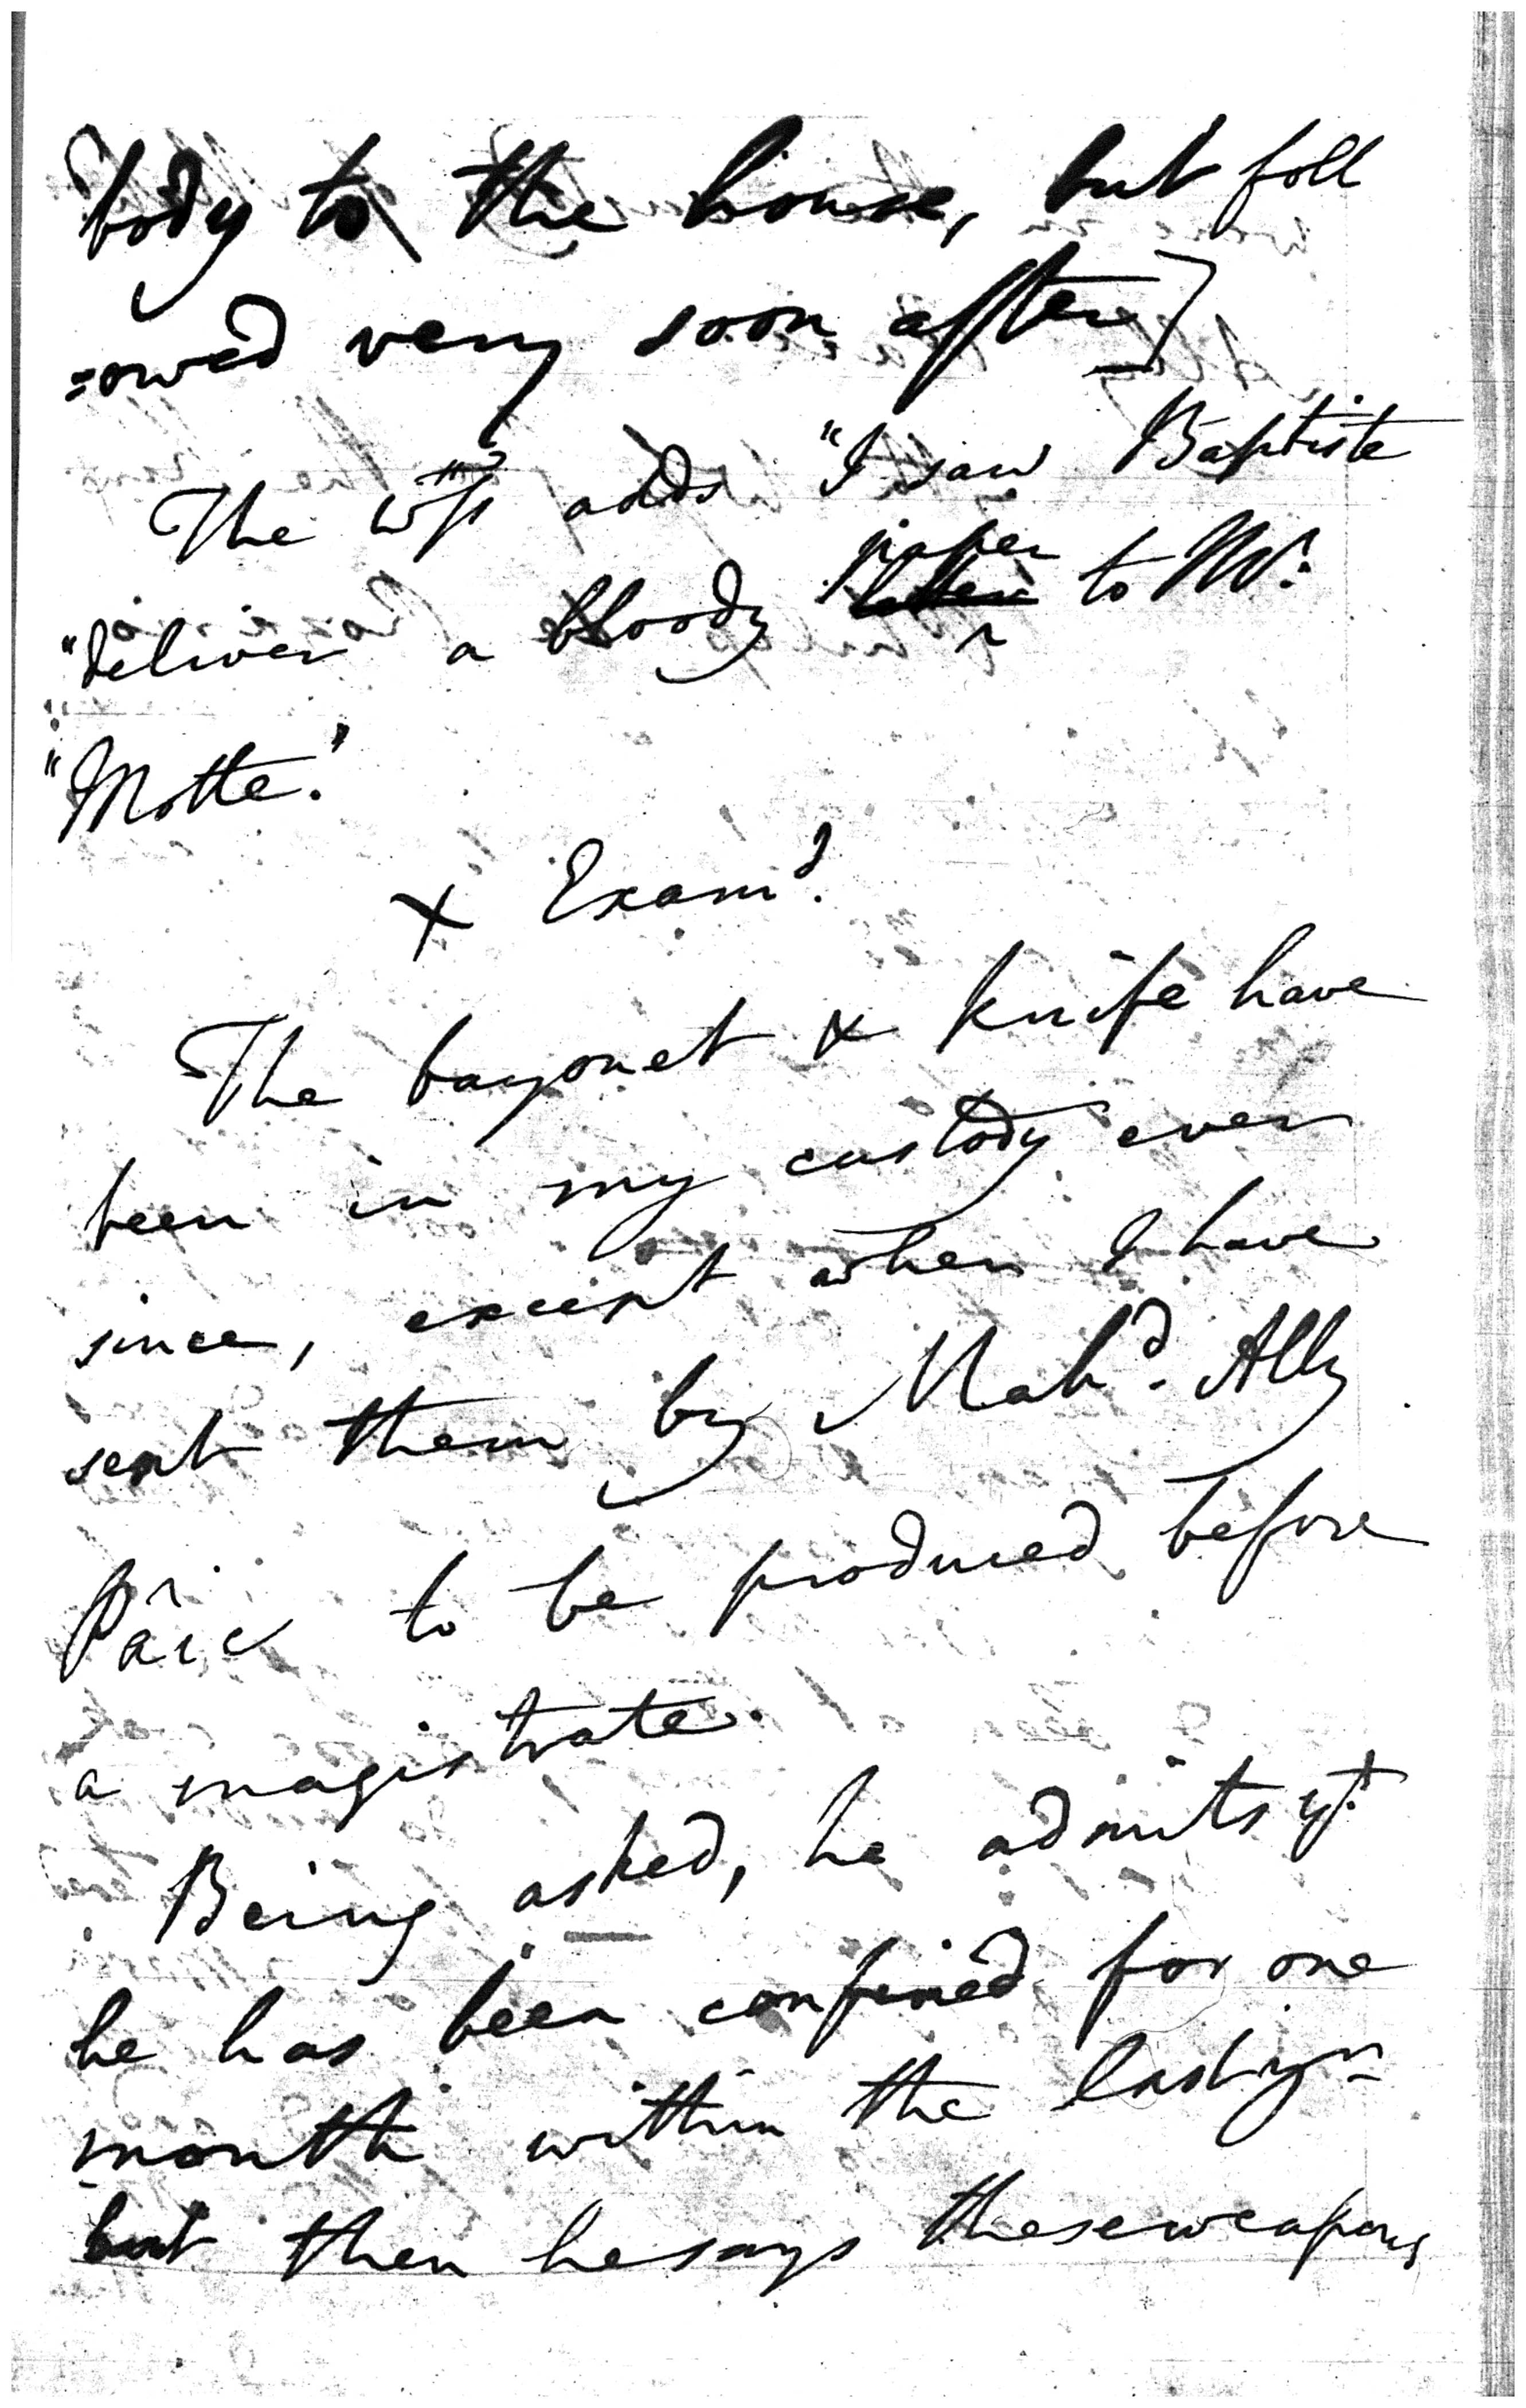 body to the house, but foll
=owed very soon after]
The wss adds "I saw Baptiste
"deliver a bloody paper to Mr.
"Motte."
x Examd.
The bayonet & knife have
been in my custody ever
since, except when I have
sent them by Mahd. Ally
to be produced before
a magistrate.
Being asked, he admits yt.
he has been confined for one
month within the last yr
but then he says these weapons